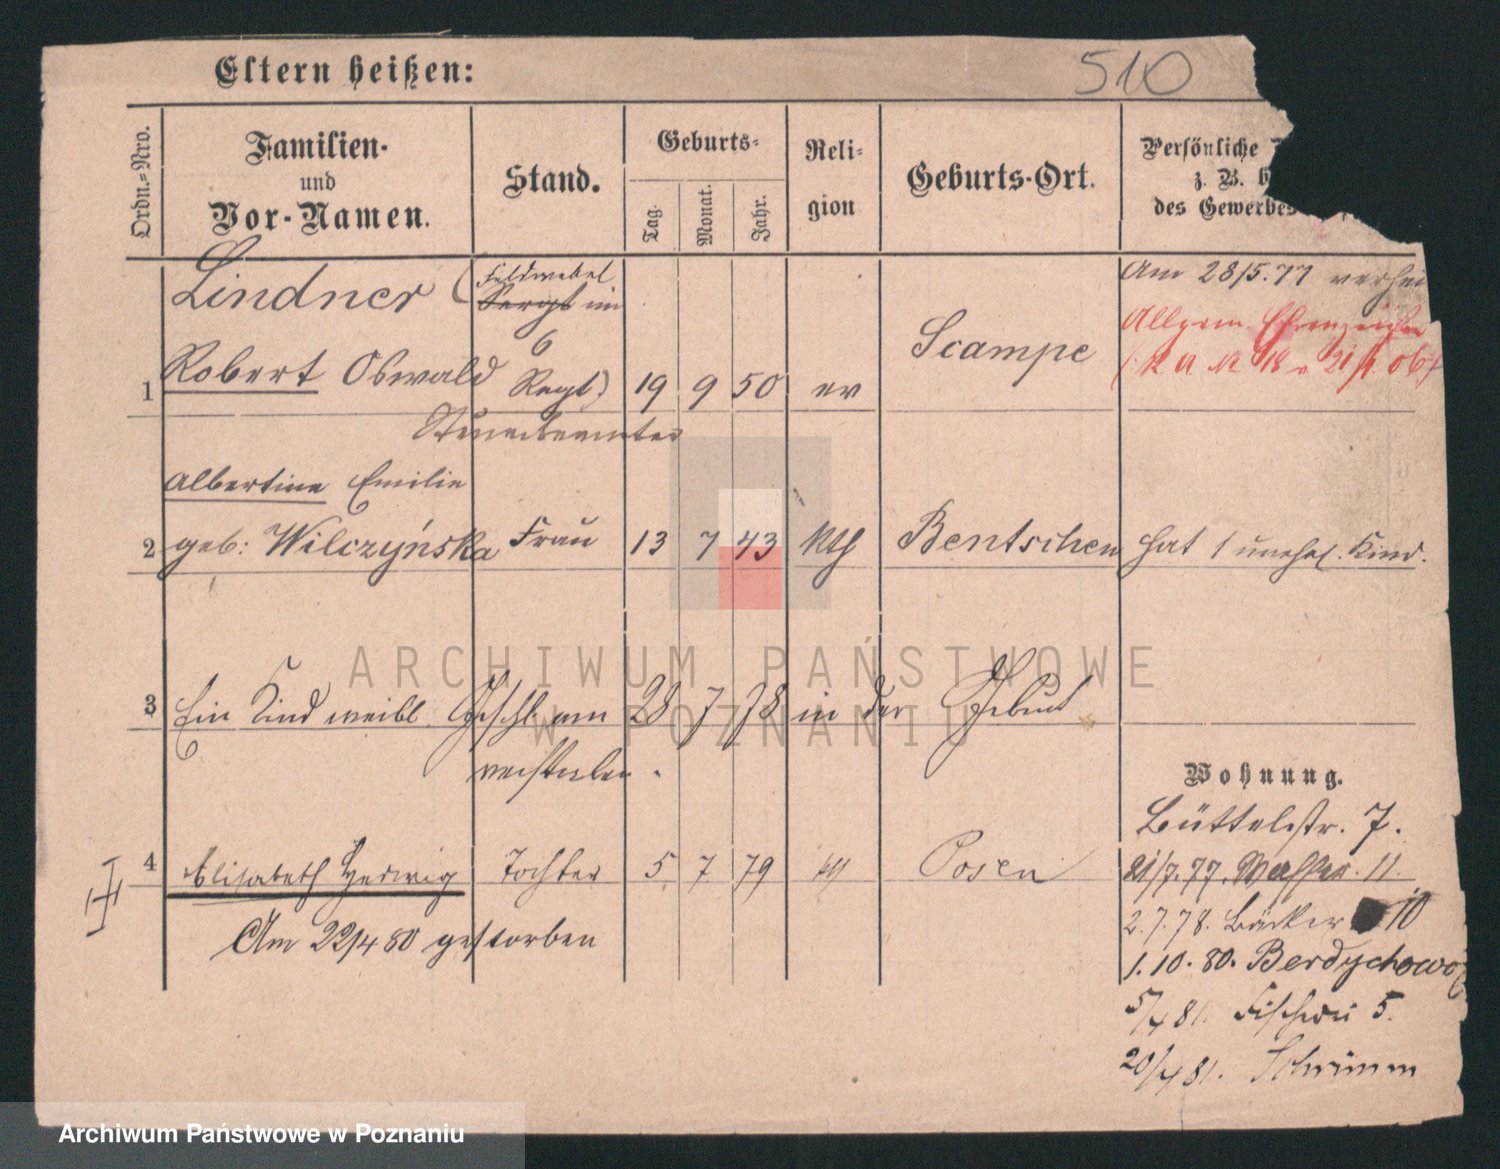 Eltern heißen:
510
Ordn.-Nro.
Familien-
und
Vor-Namen.
Stand.
Geburts-
Tag.
Monat.
Jahr.
Reli-
gion
Geburts-Ort.
Persönliche
z. B.
des Gewerbes
Lindner (Feldwebel
Sergt im
6
Regt)
1 Robert Oswald 19 9 50 ev Scampe
Am 28/5.77 verhei
Allgem. Ehrenzeichen
Steuerbeamter
Albertine Emilie
2 geb: Wilczyńska Frau 13 7 43 kth Bentschen hat 1 unehel. Kind.
3 Ein Kind weibl. Geschl. am 28 7 78 in der Geburt
verstorben.
4 Elisabeth Hedwig Tochter 5 7 79 Posen
Am 22/4 80 gestorben
Wohnung.
Büttelstr. 7.
21/7.77. Wasserstr. 11.
2.7.78. Bäcker 10
1.10.80. Berdychowo
5/4 81. Fischerei 5.
20/4 81. Schrimm
ARCHIWUM PAŃSTWOWE
W POZNANIU
Archiwum Państwowe w Poznaniu